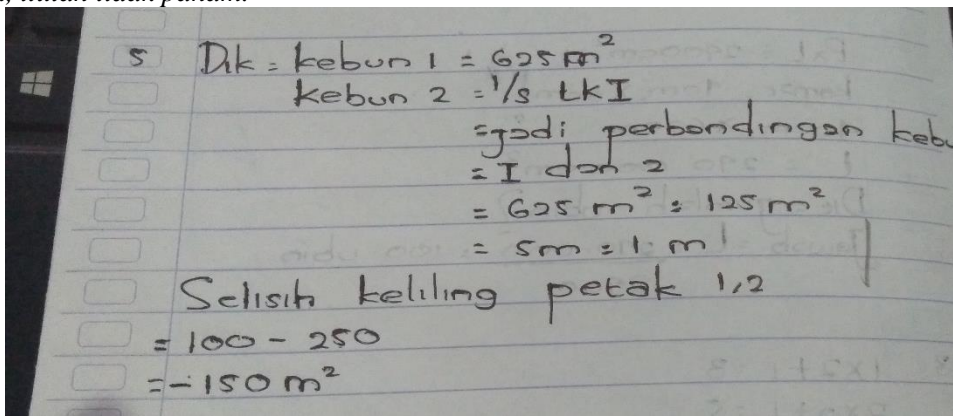 5 Dik = kebun 1 = 625 m²
kebun 2 = 1/5 LkI
= jadi perbandingan keb
= I dan 2
= 625 m² : 125 m²
= 5m : 1 m
Selisih keliling petak 1,2
= 100 - 250
= - 150 m²